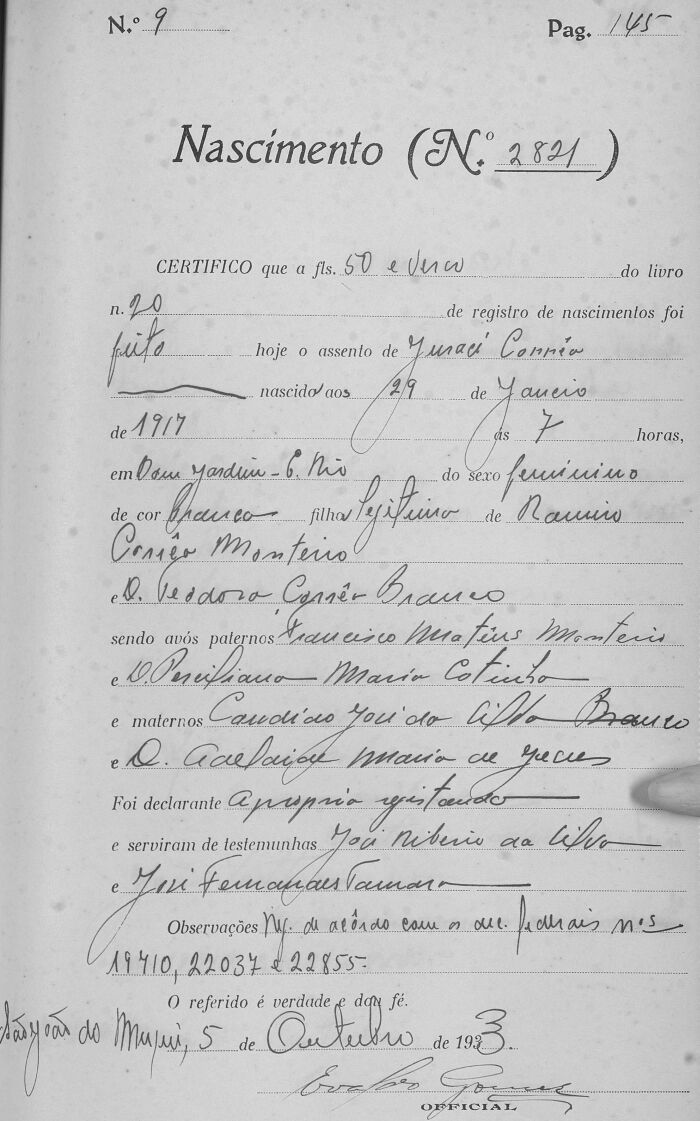 N.º 9 Pag. 145
Nascimento (N.º 2821)
CERTIFICO que a fls. 50 e verso do livro
n. 20 de registro de nascimentos foi
feito hoje o assento de Juracì Corrêa
nascido aos 29 de Janeio
de 1917 ás 7 horas,
em Bom Jardim - E. Rio do sexo feminino
de cor branca filha legitima de Ramiro
Corrêa Monteiro
e D. Teodora Corrêa Branco
sendo avós paternos Francisco Matêus Monteiro
e D. Maria Cotinha
e maternos Candido José da Silva Branco
e D. Adelaide Maria de Jesus
Foi declarante a propria registanda
e serviram de testemunhas José Ribeiro da Silva
e José Fernandes
Observações Reg. de acôrdo com os dec. federais nos
19710, 22037 e 22855-
O referido é verdade e dou fé.
São João do Muqui, 5 de Outubro de 1933.
Gomes
OFFICIAL